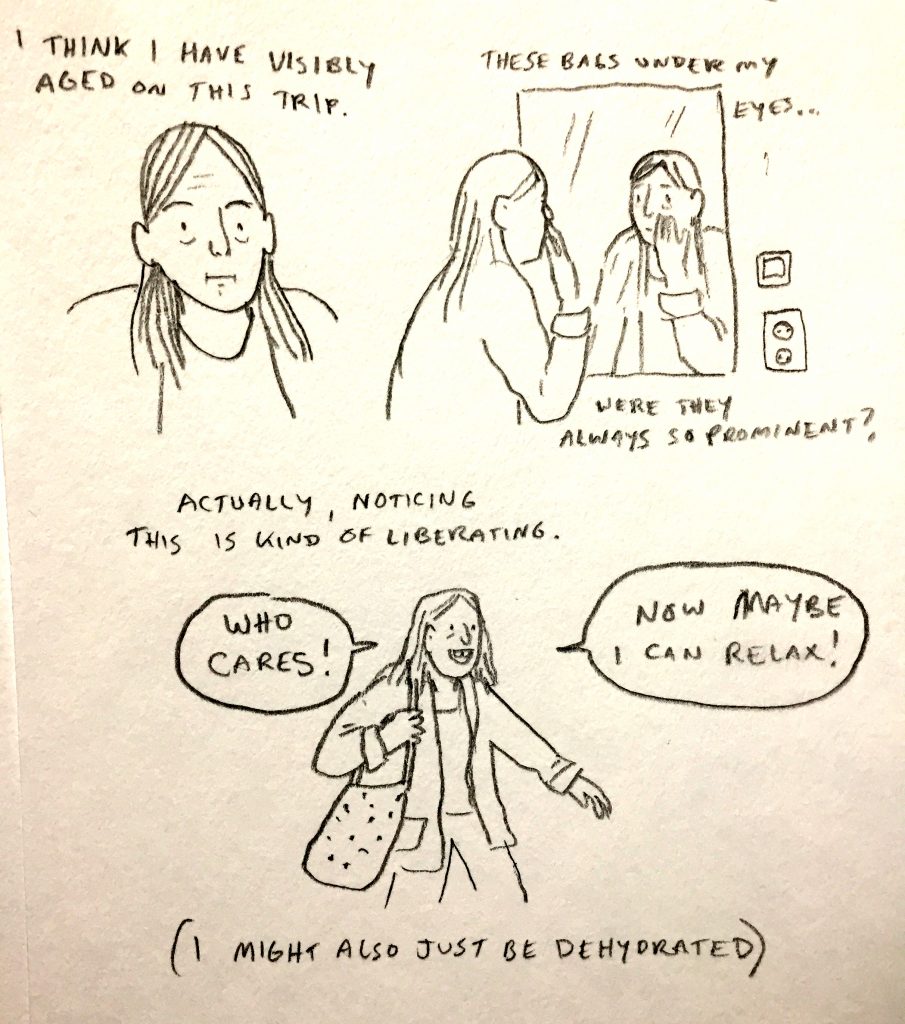 I THINK I HAVE VISIBLY
AGED ON THIS TRIP.
THESE BAGS UNDER MY
EYES...
WERE THEY
ALWAYS SO PROMINENT?
ACTUALLY, NOTICING
THIS IS KIND OF LIBERATING.
WHO
CARES!
NOW MAYBE
I CAN RELAX!
(I MIGHT ALSO JUST BE DEHYDRATED)